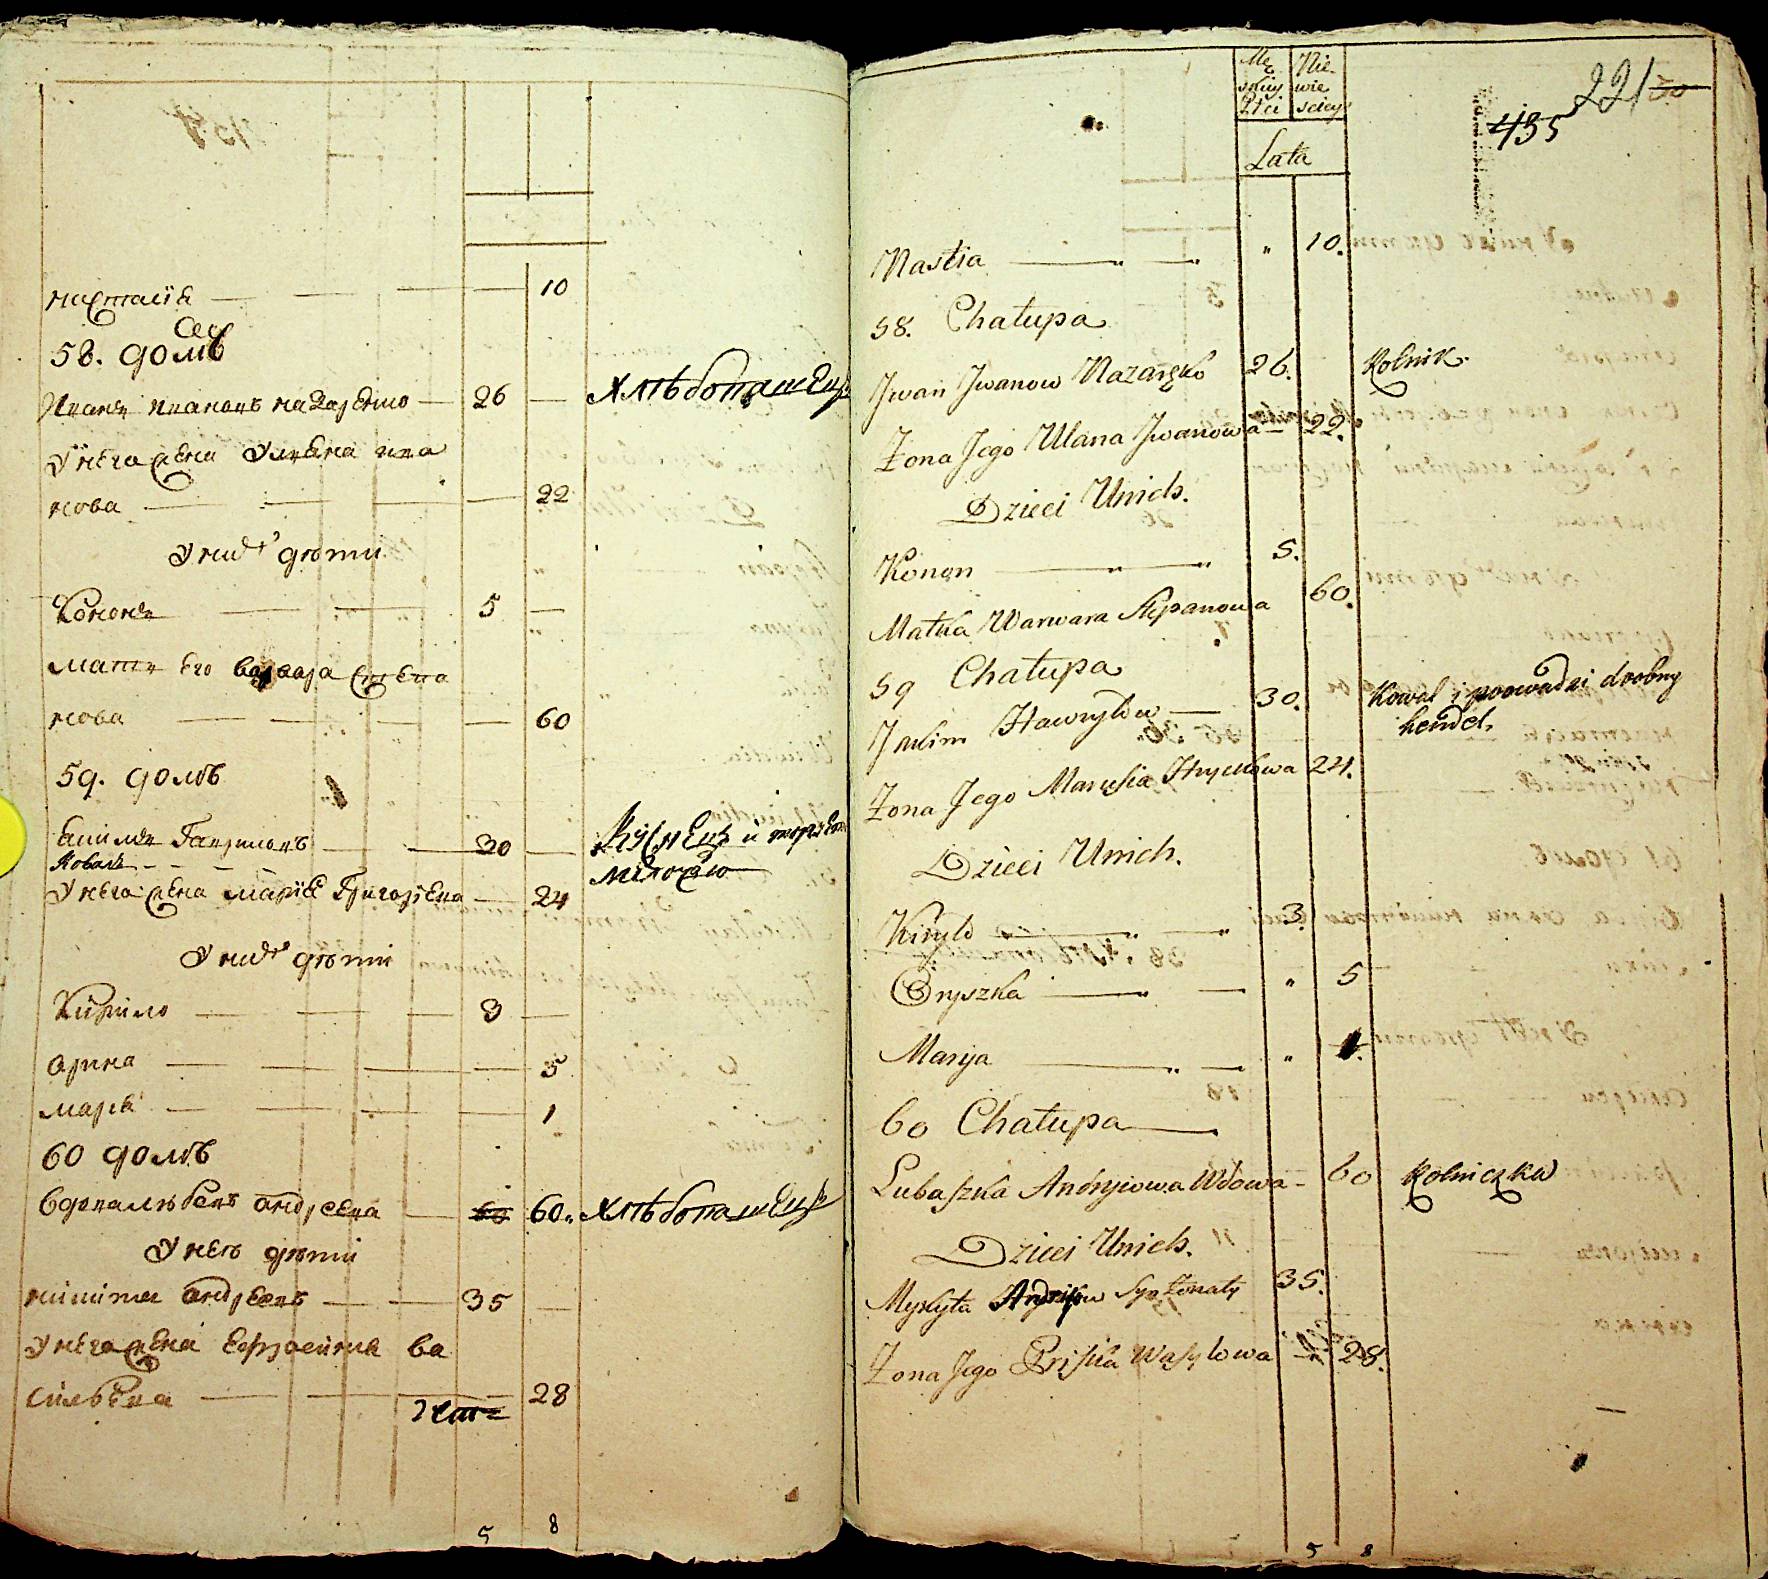 настасія 10
58. домъ
Иванъ Ивановъ назаренко 26 хлѣбопашецъ
У него жена Уляна ива
нова 22
У нихъ дѣти
Кононъ 5
мать его варвара степа
нова 60
59. домъ
Якимъ Гавриловъ 30 Кузнецъ и
Коваль
У него жена марія Григорьева 24
У нихъ дѣти
Кирило 3
арина 5
марья 1
60 домъ
вдова андреева 60 60 хлѣбопашецъ
У нее дѣти
никита андреевъ 35
У него жена Ефросинія ва
сильева 28
5 8
221 30
435
Mę Nie
skiej wie
Płci sciej
Lata
Nastia " 10.
58. Chałupa
Jwan Jwanow Nazaręko 26. Rolnik.
Żona Jego Ulana Jwanowa 22.
Dzieci Unich.
Konon 5.
Matka Warwara Stepanowa 60.
59 Chałupa
Jakim Hawryłow 30. Kowal i prowadzi drobny
hendel.
Żona Jego Marusia Hryckowa 24.
Dzieci Unich.
Kiryło 3.
Oryszka " 5
Marija " 1.
60 Chałupa
Lubaszka Andryiowa Wdowa 60 Rolniczka
Dzieci Unich.
Mykyta Andryiow Syn Żonaty 35.
Żona Jego Priska Wasyłowa 28.
5 8